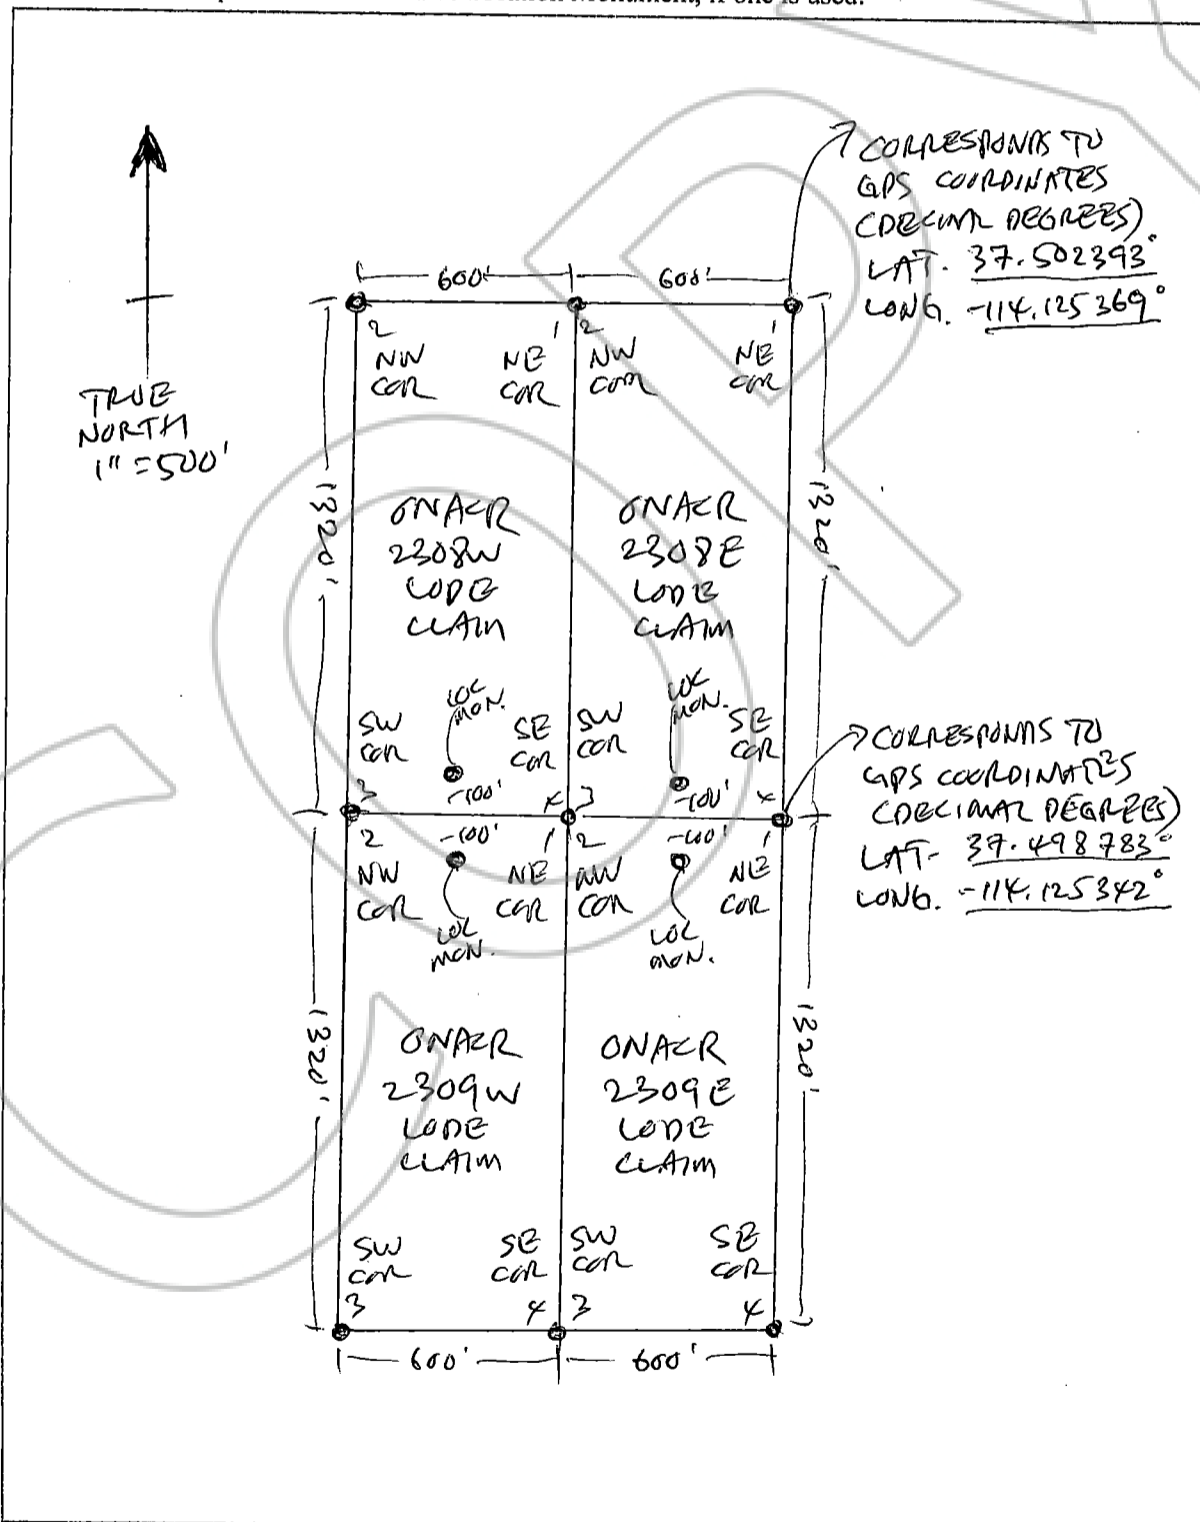 Monument, if one is used.
CORRESPONDS TO
GPS COORDINATES
(DECIMAL DEGREES)
LAT. 37.502393°
LONG. -114.125369°
600'
600'
2
1
2
1
NW
COR
NE
COR
NW
COR
NE
COR
TRUE
NORTH
1" = 500'
1320'
1320'
ONACR
2308W
LODE
CLAIM
ONACR
2308E
LODE
CLAIM
LOC
MON.
LOC
MON.
SW
COR
SE
COR
SW
COR
SE
COR
3
~100'
4
3
~100'
4
CORRESPONDS TO
GPS COORDINATES
(DECIMAL DEGREES)
LAT- 37.498783°
LONG. -114.125342°
2
~100'
1
2
~100'
1
NW
COR
NE
COR
NW
COR
NE
COR
LOC
MON.
LOC
MON.
1320'
1320'
ONACR
2309W
LODE
CLAIM
ONACR
2309E
LODE
CLAIM
SW
COR
SE
COR
SW
COR
SE
COR
3
4
3
4
600'
600'
COPY